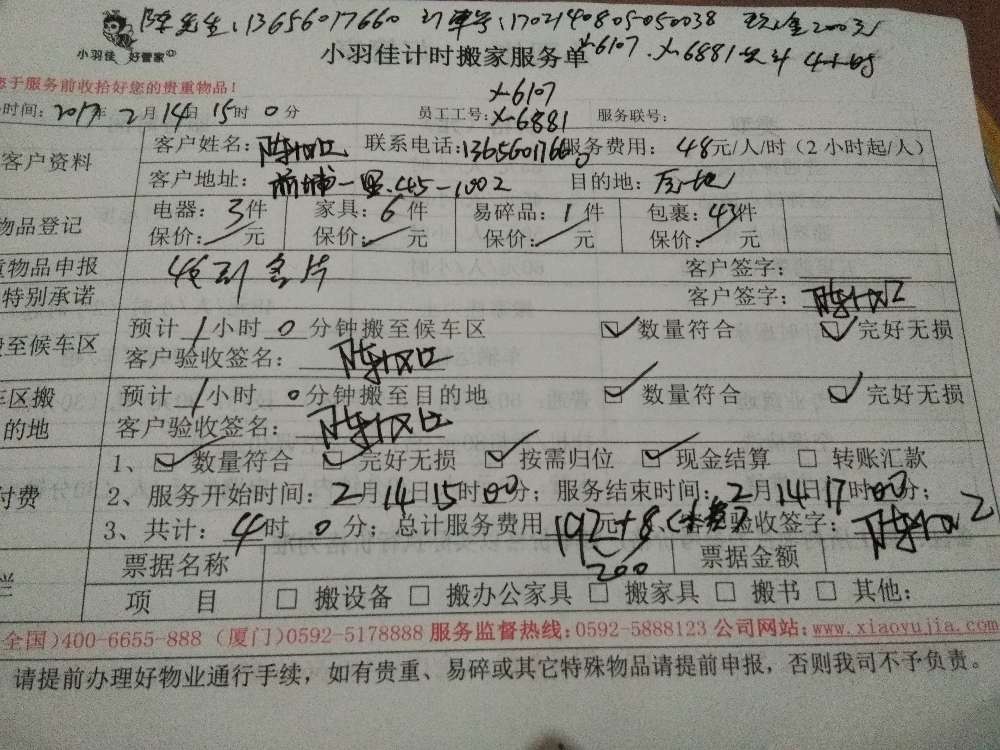 陈先生:13656017660 订单号:170214080505003­8 现金200元
小羽佳 好管家 小羽佳计时搬家服务单 x-6107.x-6881 共计 4小时
于服务前收拾好您的贵重物品!
x-6107
时间:2017年2月14日15时0分 员工工号:x-6881 服务联号:
客户资料 客户姓名: 联系电话:13656017660 服务费用:48元/人/时(2小时起/人)
客户地址:前埔一里.445-1002 目的地:
物品登记 电器:3件 家具:6件 易碎品:1件 包裹:43件
保价: 元 保价: 元 保价: 元 保价: 元
重物品申报 客户签字:
特别承诺 客户签字:
搬至候车区 预计1小时0分钟搬至候车区 数量符合 完好无损
客户验收签名:
车区搬 预计1小时0分钟搬至目的地 数量符合 完好无损
的地 客户验收签名:
1、数量符合 完好无损 按需归位 现金结算 转账汇款
付费 2、服务开始时间:2月14日15时00分;服务结束时间:2月14日17时00分;
3、共计:4时0分;总计服务费用192元+8 验收签字:
200
栏 票据名称 票据金额
项目 搬设备 搬办公家具 搬家具 搬书 其他:
全国)400-6655-888 (厦门)0592-5178888 服务监督热线:0592-5888123 公司网站:www.xiaoyujia.com
请提前办理好物业通行手续,如有贵重、易碎或其它特殊物品请提前申报,否则我司不予负责。